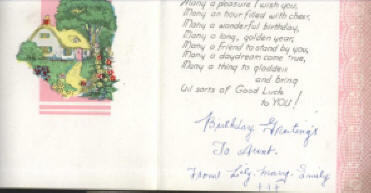 Many a pleasure I wish you,
Many an hour filled with cheer,
Many a wonderful birthday,
Many a long, golden year,
Many a friend to stand by you,
Many a daydream come true,
Many a thing to gladden
and bring
All sorts of Good Luck
to YOU!
Birthday Greetings
To Aunt.
From Lily. Mary. Emily